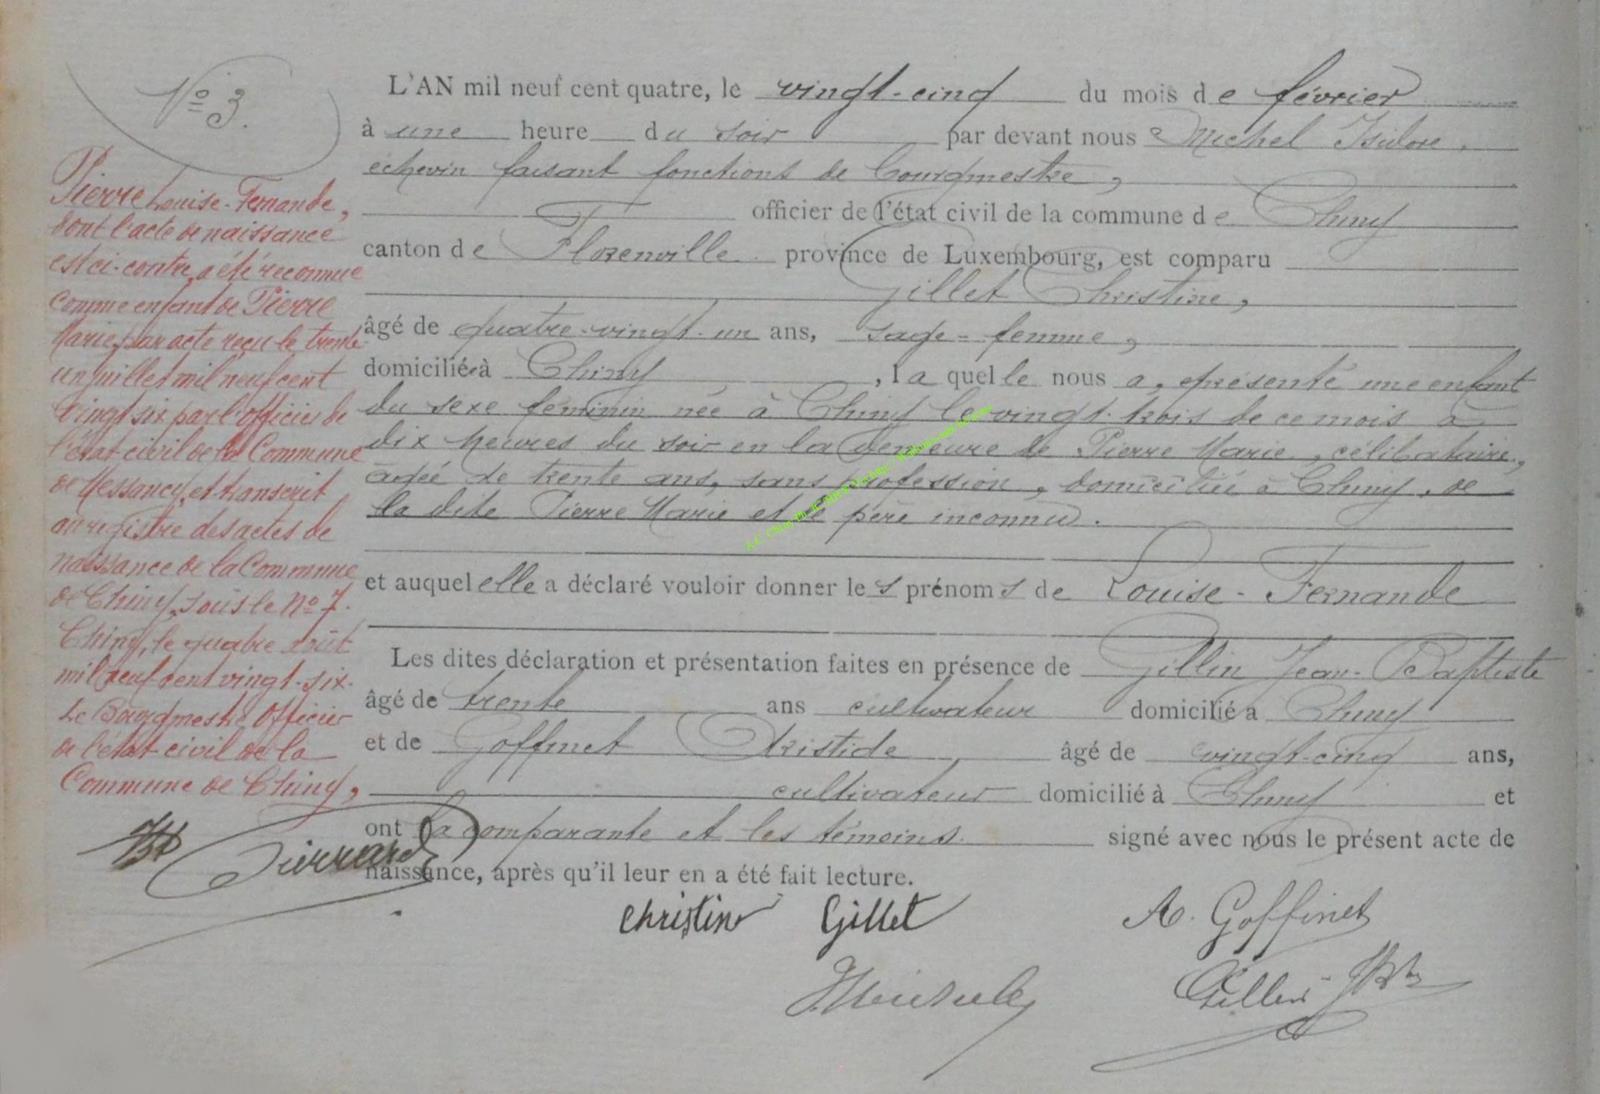 Nº 3.
Pierre Louise-Fernande,
dont l'acte de naissance
est ci-contre, a été reconnue
comme enfant de Pierre
Marie, par acte reçu le trente
un juillet mil neuf cent
vingt six par l'officier de
l'état civil de la Commune
de Messancy, et transcrit
au registre des actes de
naissance de la Commune
de Chiny, sous le Nº 7.
Chiny, le quatre août
mil neuf cent vingt-six.
Le Bourgmestre Officier
de l'état civil de la
Commune de Chiny,
Pierrard
L'AN mil neuf cent quatre, le vingt-cinq du mois de février
à une heure du soir par devant nous Michel Isidore,
échevin faisant fonctions de Bourgmestre,
officier de l'état civil de la commune de Chiny
canton de Florenville province de Luxembourg, est comparu
Gillet Christine,
âgé de quatre-vingt-un ans, sage-femme,
domiciliée à Chiny, laquelle nous a, présenté une enfant
du sexe féminin née à Chiny le vingt-trois de ce mois à
dix heures du soir en la demeure de Pierre Marie, célibataire,
âgée de trente ans, sans profession, domiciliée à Chiny, de
la dite Pierre Marie et de père inconnu.
et auquel elle a déclaré vouloir donner les prénoms de Louise-Fernande
Les dites déclaration et présentation faites en présence de Gillin Jean-Baptiste
âgé de trente ans cultivateur domicilié à Chiny
et de Goffinet Aristide âgé de vingt-cinq ans,
cultivateur domicilié à Chiny et
ont la comparante et les témoins signé avec nous le présent acte de
naissance, après qu'il leur en a été fait lecture.
Christine Gillet A. Goffinet
Gillin JBte